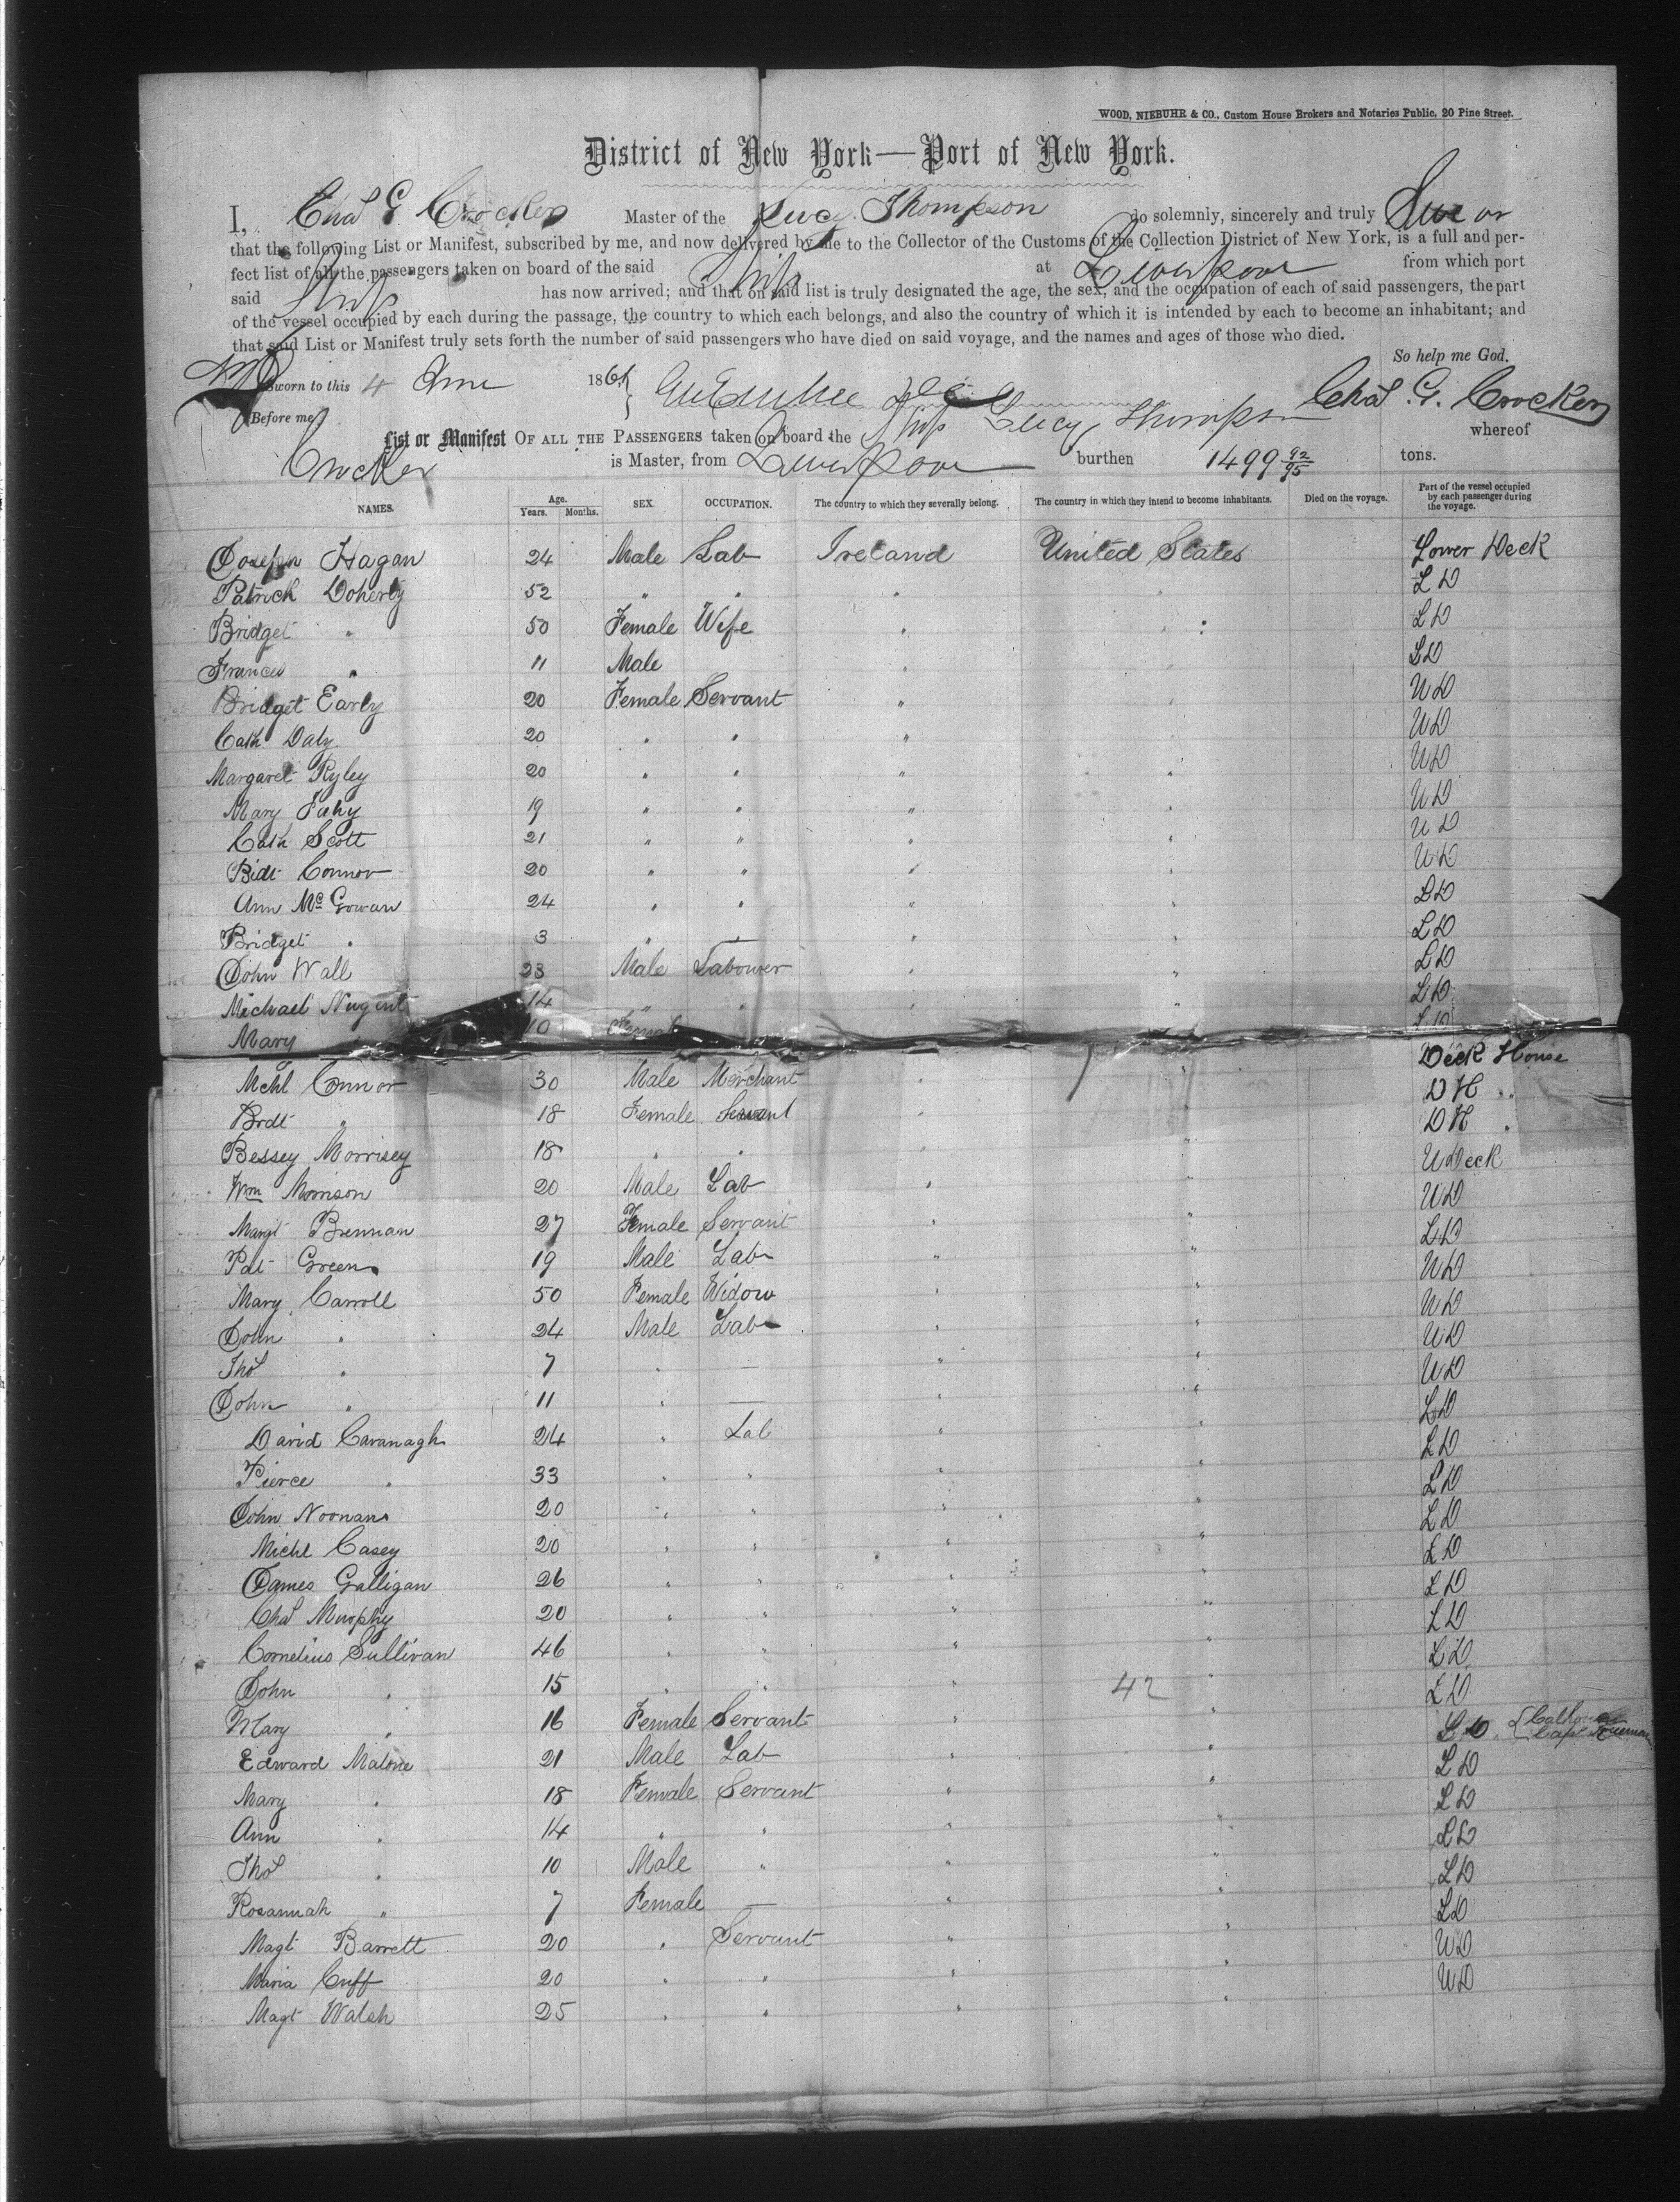 WOOD, NIEBUHR & CO., Custom House Brokers and Notaries Public, 20 Pine Street.
District of New York—Port of New York.
I, Chas G Crocker Master of the Lucy Thompson do solemnly, sincerely and truly Swear
that the following List or Manifest, subscribed by me, and now delivered by me to the Collector of the Customs of the Collection District of New York, is a full and per-
fect list of all the passengers taken on board of the said Ship at Liverpool from which port
said Ship has now arrived; and that on said list is truly designated the age, the sex, and the occupation of each of said passengers, the part
of the vessel occupied by each during the passage, the country to which each belongs, and also the country of which it is intended by each to become an inhabitant; and
that said List or Manifest truly sets forth the number of said passengers who have died on said voyage, and the names and ages of those who died.
So help me God.
Sworn to this 4 June 1861 Chas. G. Crocker
Before me
List or Manifest OF ALL THE PASSENGERS taken on board the Ship Lucy Thompson whereof
Crocker is Master, from Liverpool burthen 1499 92/95 tons.
NAMES. Age. Years. Months. SEX. OCCUPATION. The country to which they severally belong. The country in which they intend to become inhabitants. Died on the voyage. Part of the vessel occupied by each passenger during the voyage.
Joseph Hagan 24 Male Lab Ireland United States Lower Deck
Patrick Doherty 52 " " " " L D
Bridget " 50 Female Wife " " L D
Frances " 11 Male " " L D
Bridget Early 20 Female Servant " " U D
Cath Daly 20 " " " " U D
Margaret Ryley 20 " " " " U D
Mary Fahy 19 " " " " U D
Cath Scott 21 " " " " U D
Bidt Connor 20 " " " " U D
Ann McGowan 24 " " " " L D
Bridget " 3 " — " " L D
John Wall 23 Male Labourer " " L D
Michael Nugent 14 " " " " L D
Mary " 10 Female L D
Mchl Connor 30 Male Merchant " " Deck House
Brdt " 18 Female Servant " " D H "
Bessey Morrisey 18 " " " " D H "
Wm Morrison 20 Male Lab " " U Deck
Margt Brennan 27 Female Servant " " U D
Pat Green 19 Male Lab " " L D
Mary Carroll 50 Female Widow " " U D
John " 24 Male Lab " " U D
Thos " 7 " — " " U D
John " 11 " — " " U D
David Cavanagh 24 " Lab " " L D
Pierce " 33 " " " " L D
John Noonan 20 " " " " L D
Michl Casey 20 " " " " L D
James Galligan 26 " " " " L D
Chas Murphy 20 " " " " L D
Cornelius Sullivan 46 " " " " L D
John " 15 " " " 42 " L D
Mary " 16 Female Servant " " L D
Edward Malone 21 Male Lab " " L D
Mary " 18 Female Servant " " L D
Ann " 14 " " " " L D
Thos " 10 Male " " " L D
Rosannah " 7 Female — " " L D
Magt Barrett 20 " Servant " " L D
Maria Cuff 20 " " " " U D
Magt Walsh 25 " " " " U D